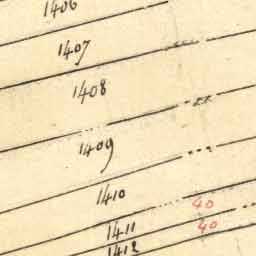 1406
1407
1408
1409
1410
40
1411
40
1412